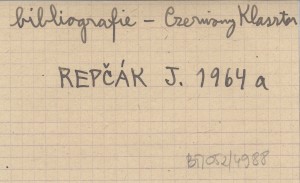 bibliografie – Czerwony Klasztor
REPČÁK J. 1964 a